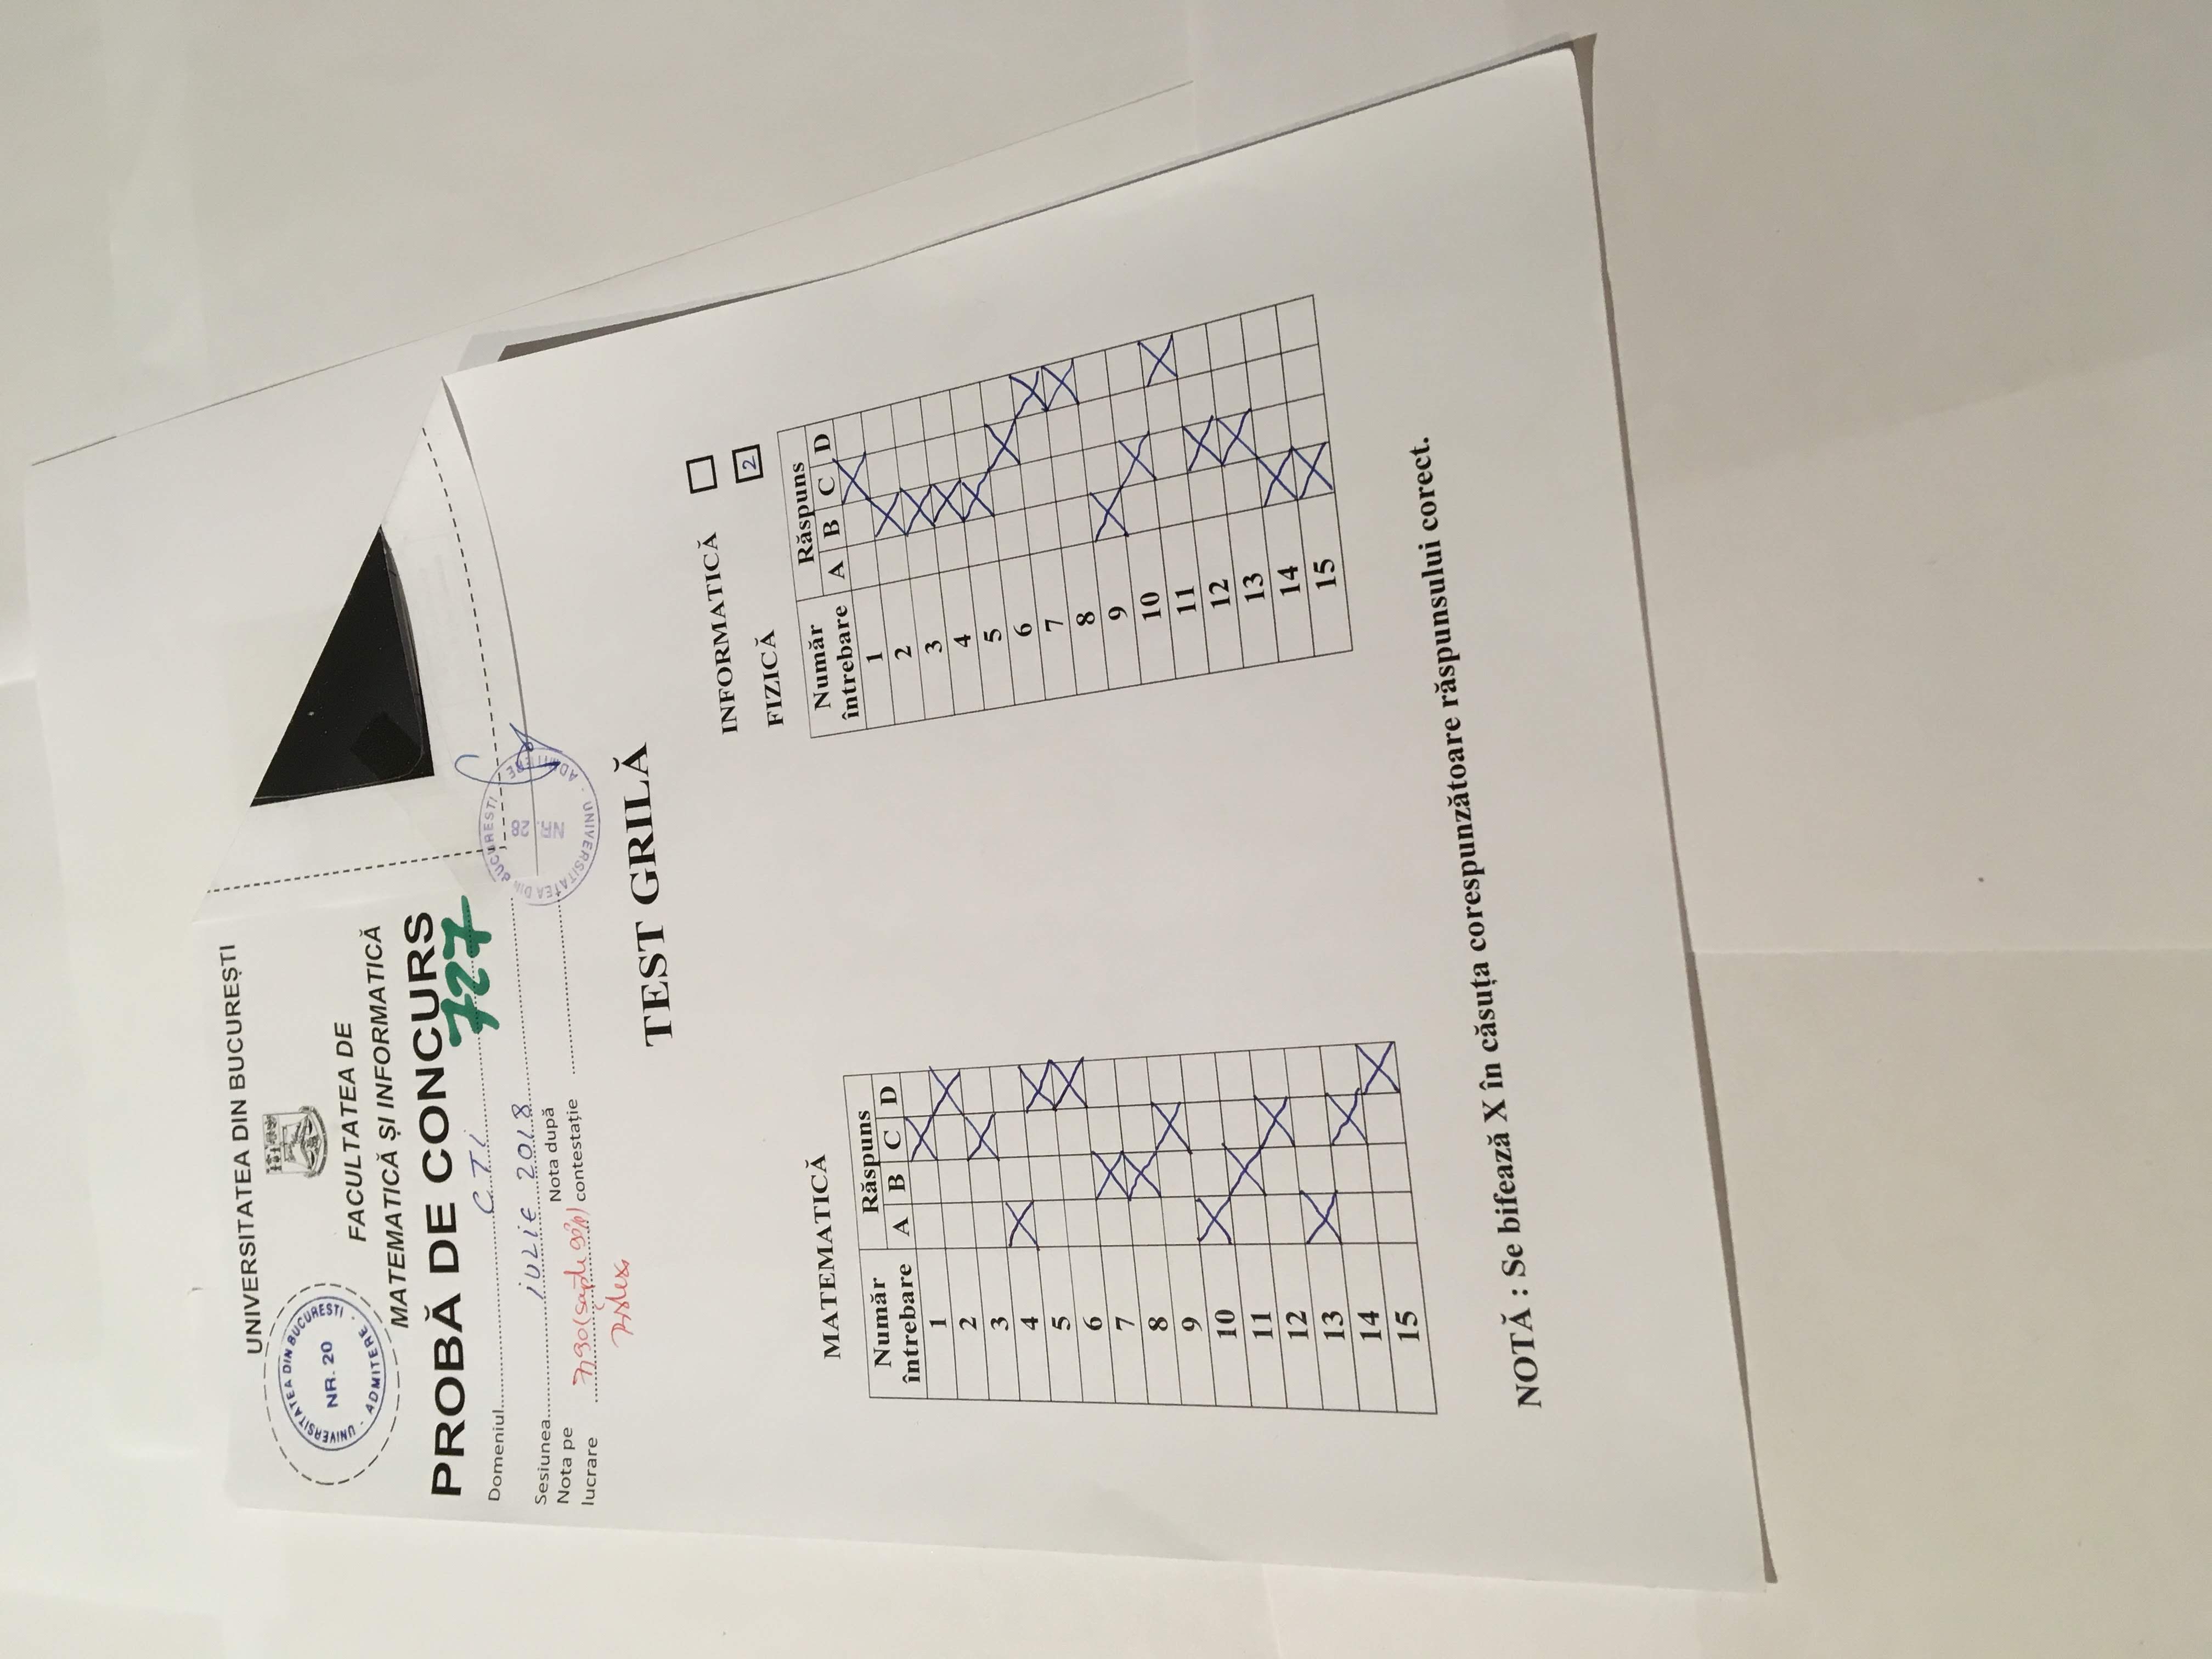 UNIVERSITATEA DIN BUCUREȘTI
UNIVERSITATEA DIN BUCURESTI
NR. 20
· ADMITERE ·
FACULTATEA DE
MATEMATICĂ ȘI INFORMATICĂ
PROBĂ DE CONCURS
727
Domeniul CTI
Sesiunea iulie 2018
Nota pe lucrare 7,90 Nota după contestație
UNIVERSITATEA DIN BUCURESTI
NR. 28
ADMITERE
TEST GRILĂ
INFORMATICĂ
FIZICĂ 2
MATEMATICĂ
Număr întrebare Răspuns
A B C D
1 X
2 X
3 X
4 X
5 X
6 X
7 X
8 X
9 X
10 X
11 X
12 X
13 X
14 X
15 X
Număr întrebare Răspuns
A B C D
1 X
2 X
3 X
4 X
5 X
6 X
7 X
8 X
9 X
10 X
11 X
12 X
13 X
14 X
15 X
NOTĂ : Se bifează X în căsuța corespunzătoare răspunsului corect.